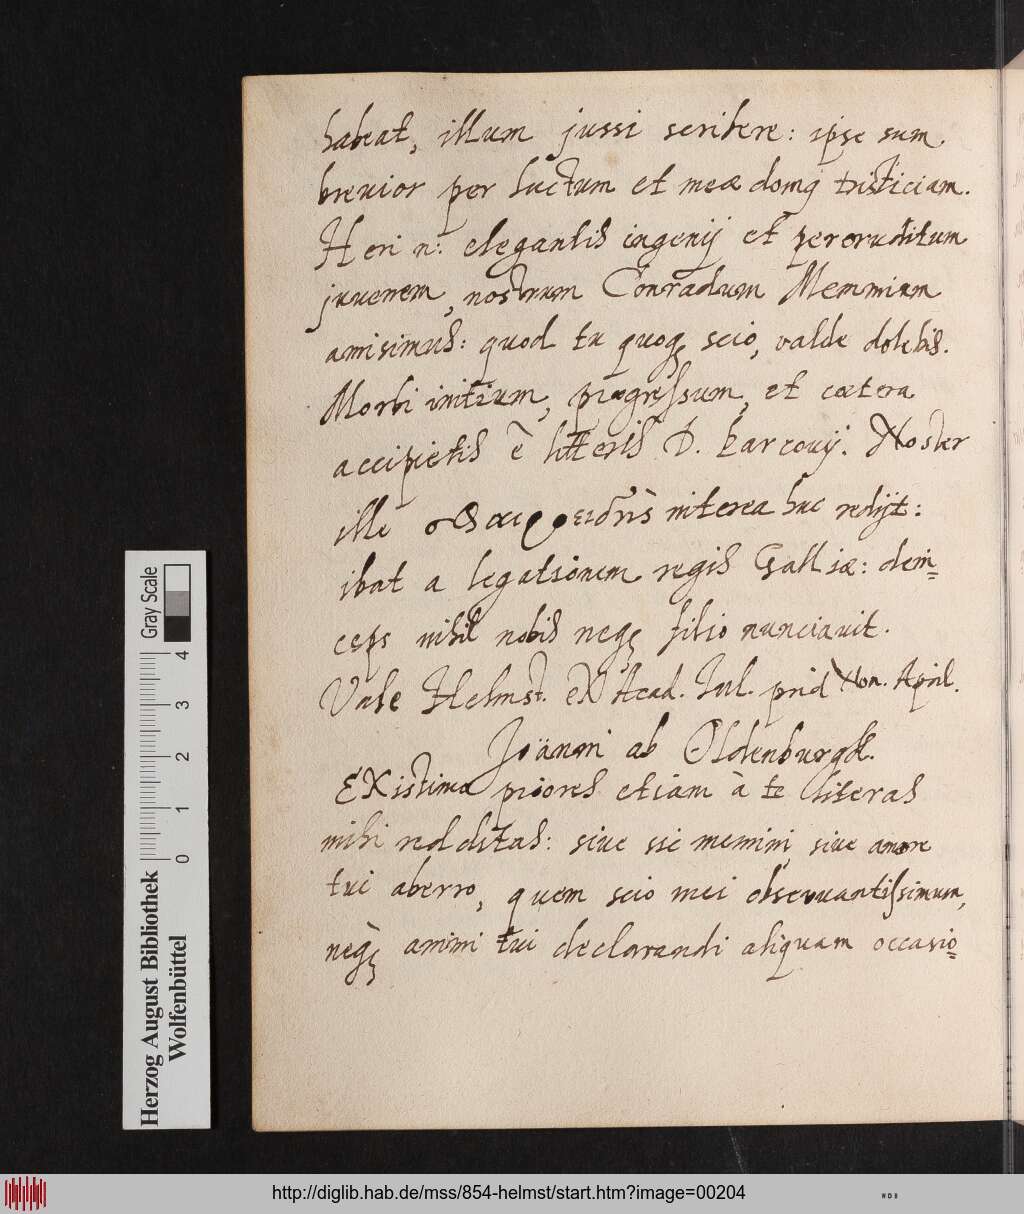 habeat, illum jussi scribere: ipse sum
breuior per luctum et meæ domꝰ tristiciam.
Heri n: elegantis ingenij et pereruditum
juuenem, nostrum Conradum Memmium
amisimus: quod tu quoqꝫ scio, valde dolebis.
Morbi initium, progressum, et cœtera
accipietis è litteris D. Barcouij. Noster
ille interea huc redijt:
ibat a legationem regis Galliæ: dein=
ceps nihil nobis neqꝫ filio nunciauit.
Vale Helmst. ex Acad. Iul. prid Non. April.
Joänni ab Oldenburgk.
Existima priores etiam à te literas
mihi redditas: siue sic memini, siue amore
tui aberro, quem scio mei obseruantissimum,
neqꝫ animi tui declarandi aliquam occasio=
Herzog August Bibliothek
Wolfenbüttel
Gray Scale
0 1 2 3 4
http://diglib.hab.de/mss/854-helmst/start.htm?image=00204
WDB